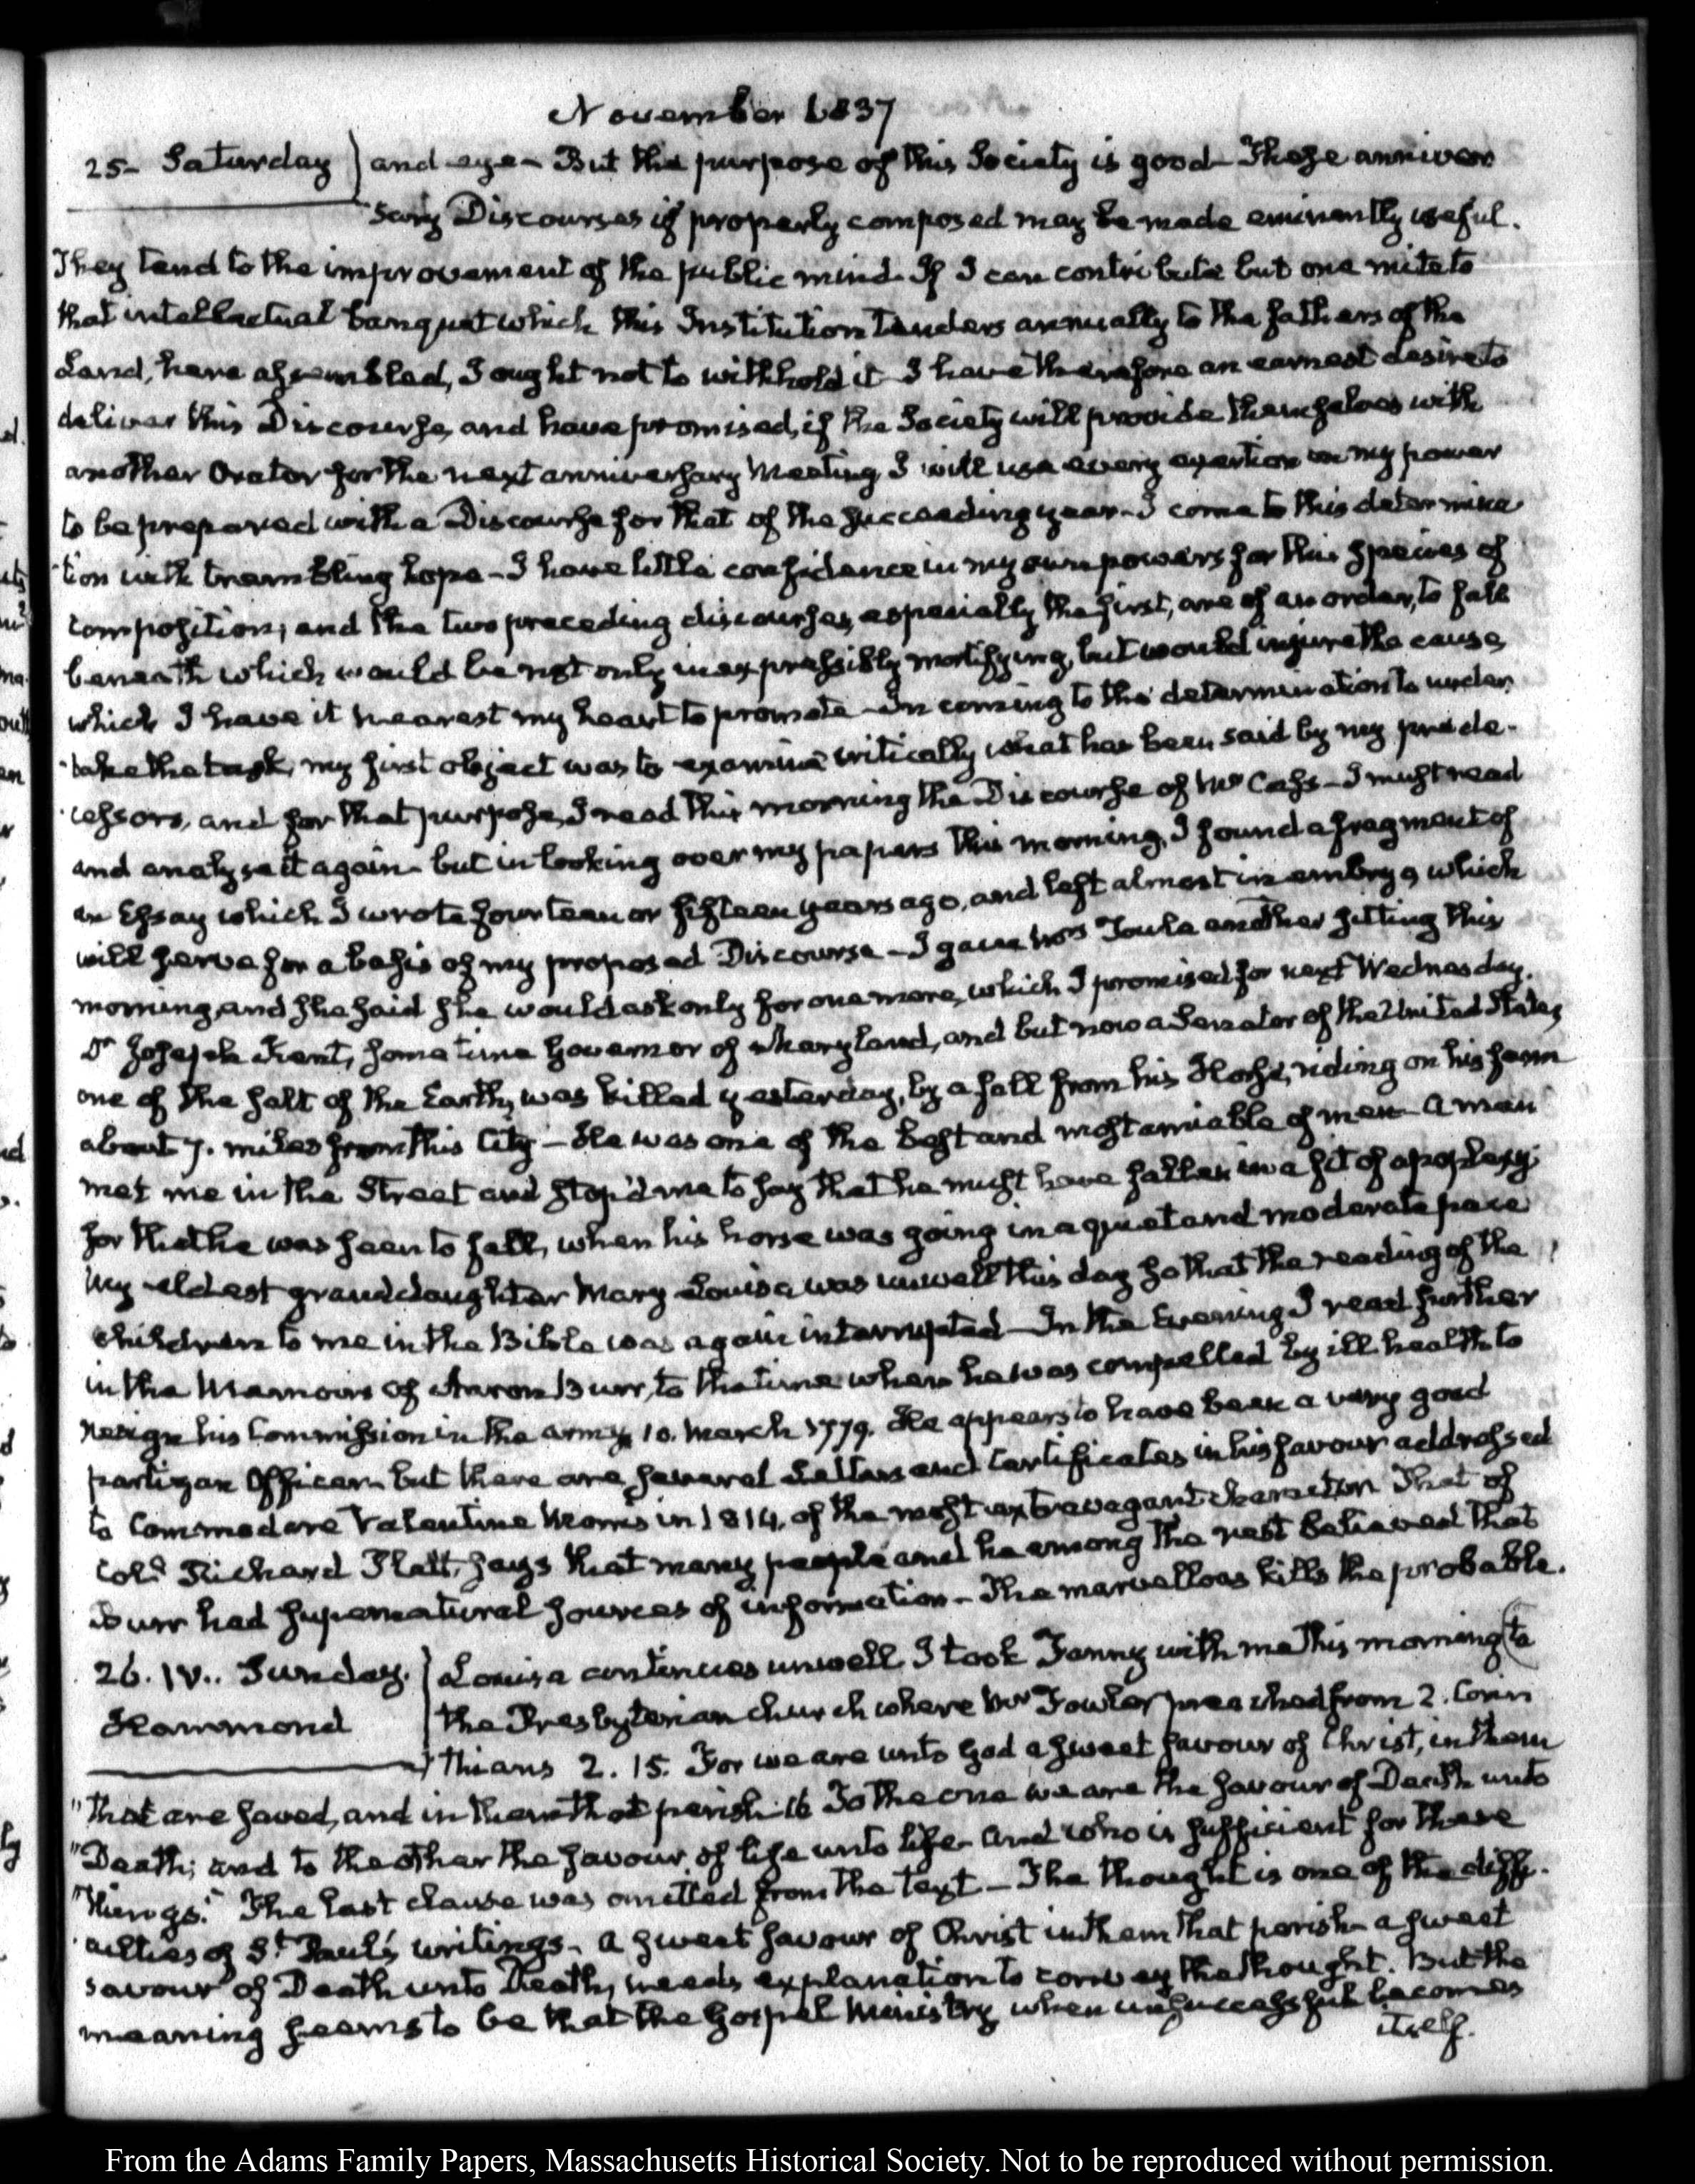 November 1837
25– Saturday ) and eye– But the purpose of this Society is good– These anniver
sary Discourses if properly composed may be made eminently useful.
They tend to the improvement of the public mind– If I can contribute but one mite to
that intellectual banquet which this Institution tenders annually to the fathers of the
Land, here assembled, I ought not to withhold it– I have therefore an earnest desire to
deliver this Discourse, and have promised, if the Society will provide themselves with
another Orator for the next anniversary Meeting I will use every exertion in my power
to be prepared with a Discourse for that of the succeeding year– I come to this determina
tion with trembling hope– I have little confidence in my own powers for this species of
composition; and the two preceding discourses, especially the first, are of an order, to fall
beneath which would be not only inexpressibly mortifying, but would injure the cause,
which I have it nearest my heart to promote– In coming to the determination to under
take the task, my first object was to examine critically what has been said by my prede-
cessors, and for that purpose, I read this morning the Discourse of Mr Cass– I must read
and analyse it again– but in looking over my papers this morning, I found a fragment of
an Essay which I wrote fourteen or fifteen years ago, and left almost in embryo, which
will serve for a basis of my proposed Discourse– I gave Mrs Towle another sitting this
morning, and she said she would ask only for one more, which I promised for next Wednesday.
Dr Joseph Kent, some time Governor of Maryland, and but now a Senator of the United States,
one of the salt of the Earth, was killed yesterday, by a fall from his Horse, riding on his farm
about 7. miles from this City– He was one of the best and most amiable of men– A man
met me in the Street and stop'd me to say that he must have fallen in a fit of apoplexy;
for that he was seen to fall, when his horse was going in a quiet and moderate pace
My eldest granddaughter Mary Louisa was unwell this day so that the reading of the
children to me in the Bible was again interrupted– In the Evening I read further
in the Memoirs of Aaron Burr, to the time when he was compelled by ill health to
resign his Commission in the army, 10. March 1779. He appears to have been a very good
partizan Officer– but there are several Letters and Certificates in his favour addressed
to Commodore Valentine Morris in 1814, of the most extravagant character. That of
Coll. Richard Platt, says that many people and he among the rest believed that
Burr had supernatural sources of information– The marvellous kills the probable.
26. IV.. Sunday. Louisa continues unwell I took Fanny with me this morning to
Hammond the Presbyterian church where Mr Fowler preached from 2. Corin
thians 2. 15. For we are unto God a sweet savour of Christ, in them
"that are saved, and in them that perish– 16 To the one we are the savour of Death unto
"Death; and to the other the savour of life unto life– And who is sufficient for these
"things." The last clause was omitted from the text– The thought is one of the diffi-
culties of St. Paul's writings– a sweet savour of Christ in them that perish– a sweet
savour of Death unto Death, needs explanation to convey the thought. But the
meaning seems to be that the Gospel Ministry when unsuccessful becomes
itself.
From the Adams Family Papers, Massachusetts Historical Society. Not to be reproduced without permission.